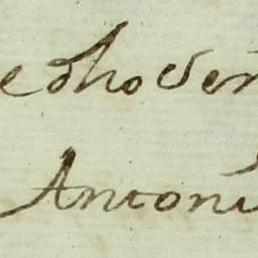 edhoven
Antoni